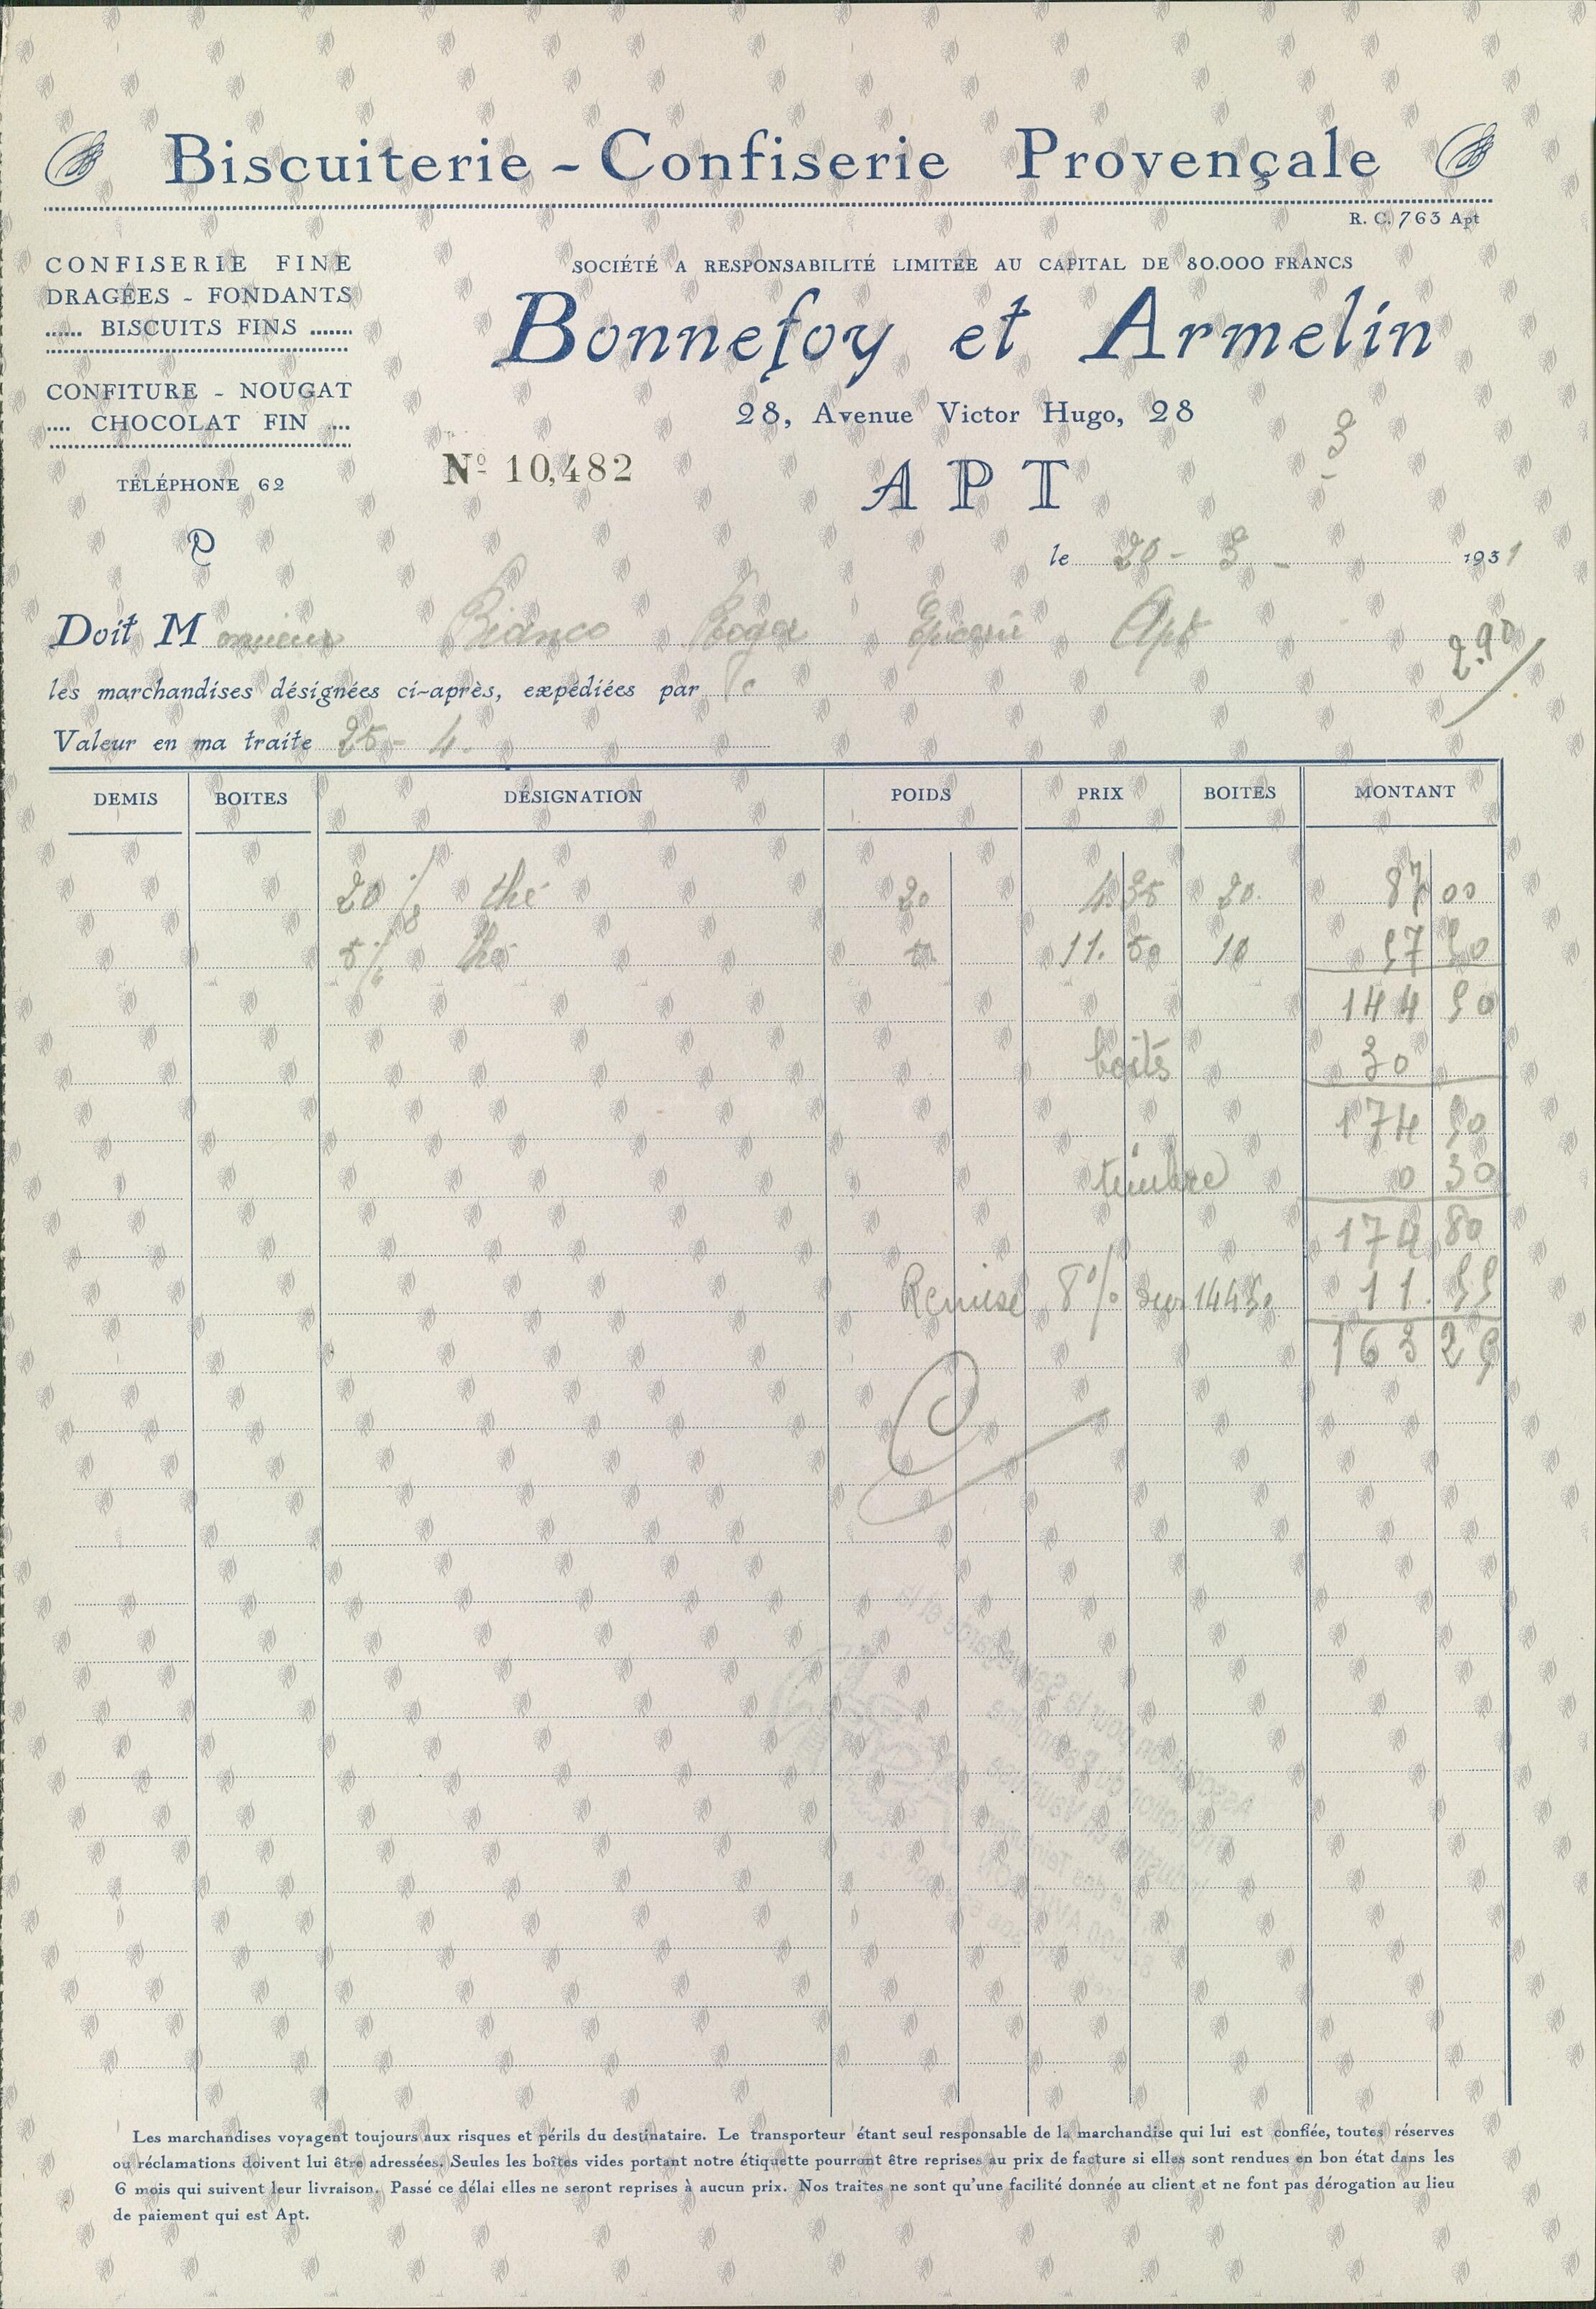 Biscuiterie - Confiserie Provençale
R. C. 763 Apt
CONFISERIE FINE
DRAGÉES - FONDANTS
...... BISCUITS FINS .......
CONFITURE - NOUGAT
.... CHOCOLAT FIN ....
TÉLÉPHONE 62
SOCIÉTÉ A RESPONSABILITÉ LIMITÉE AU CAPITAL DE 80.000 FRANCS
Bonnefoy et Armelin
28, Avenue Victor Hugo, 28
3
Nº 10,482
APT
le 20 - 3 - 1931
Doit Monsieur Bianco Roger Epicerie Apt
2.90
les marchandises désignées ci-après, expédiées par
Valeur en ma traite 25 - 4.
DEMIS BOITES DÉSIGNATION POIDS PRIX BOITES MONTANT
20 /8 thé 20 4.35 20. 87 00
5 / thé 11.50 10 57 50
144 50
boites 30
174 50
timbre 0 30
174 80
Remise 8% sur 144 50 11.55
163 25
Association pour la Sauvegarde et la
Promotion du Patrimoine
Industriel en Vaucluse
rue des Teinturiers
Les marchandises voyagent toujours aux risques et périls du destinataire. Le transporteur étant seul responsable de la marchandise qui lui est confiée, toutes réserves
ou réclamations doivent lui être adressées. Seules les boîtes vides portant notre étiquette pourront être reprises au prix de facture si elles sont rendues en bon état dans les
6 mois qui suivent leur livraison. Passé ce délai elles ne seront reprises à aucun prix. Nos traites ne sont qu'une facilité donnée au client et ne font pas dérogation au lieu
de paiement qui est Apt.